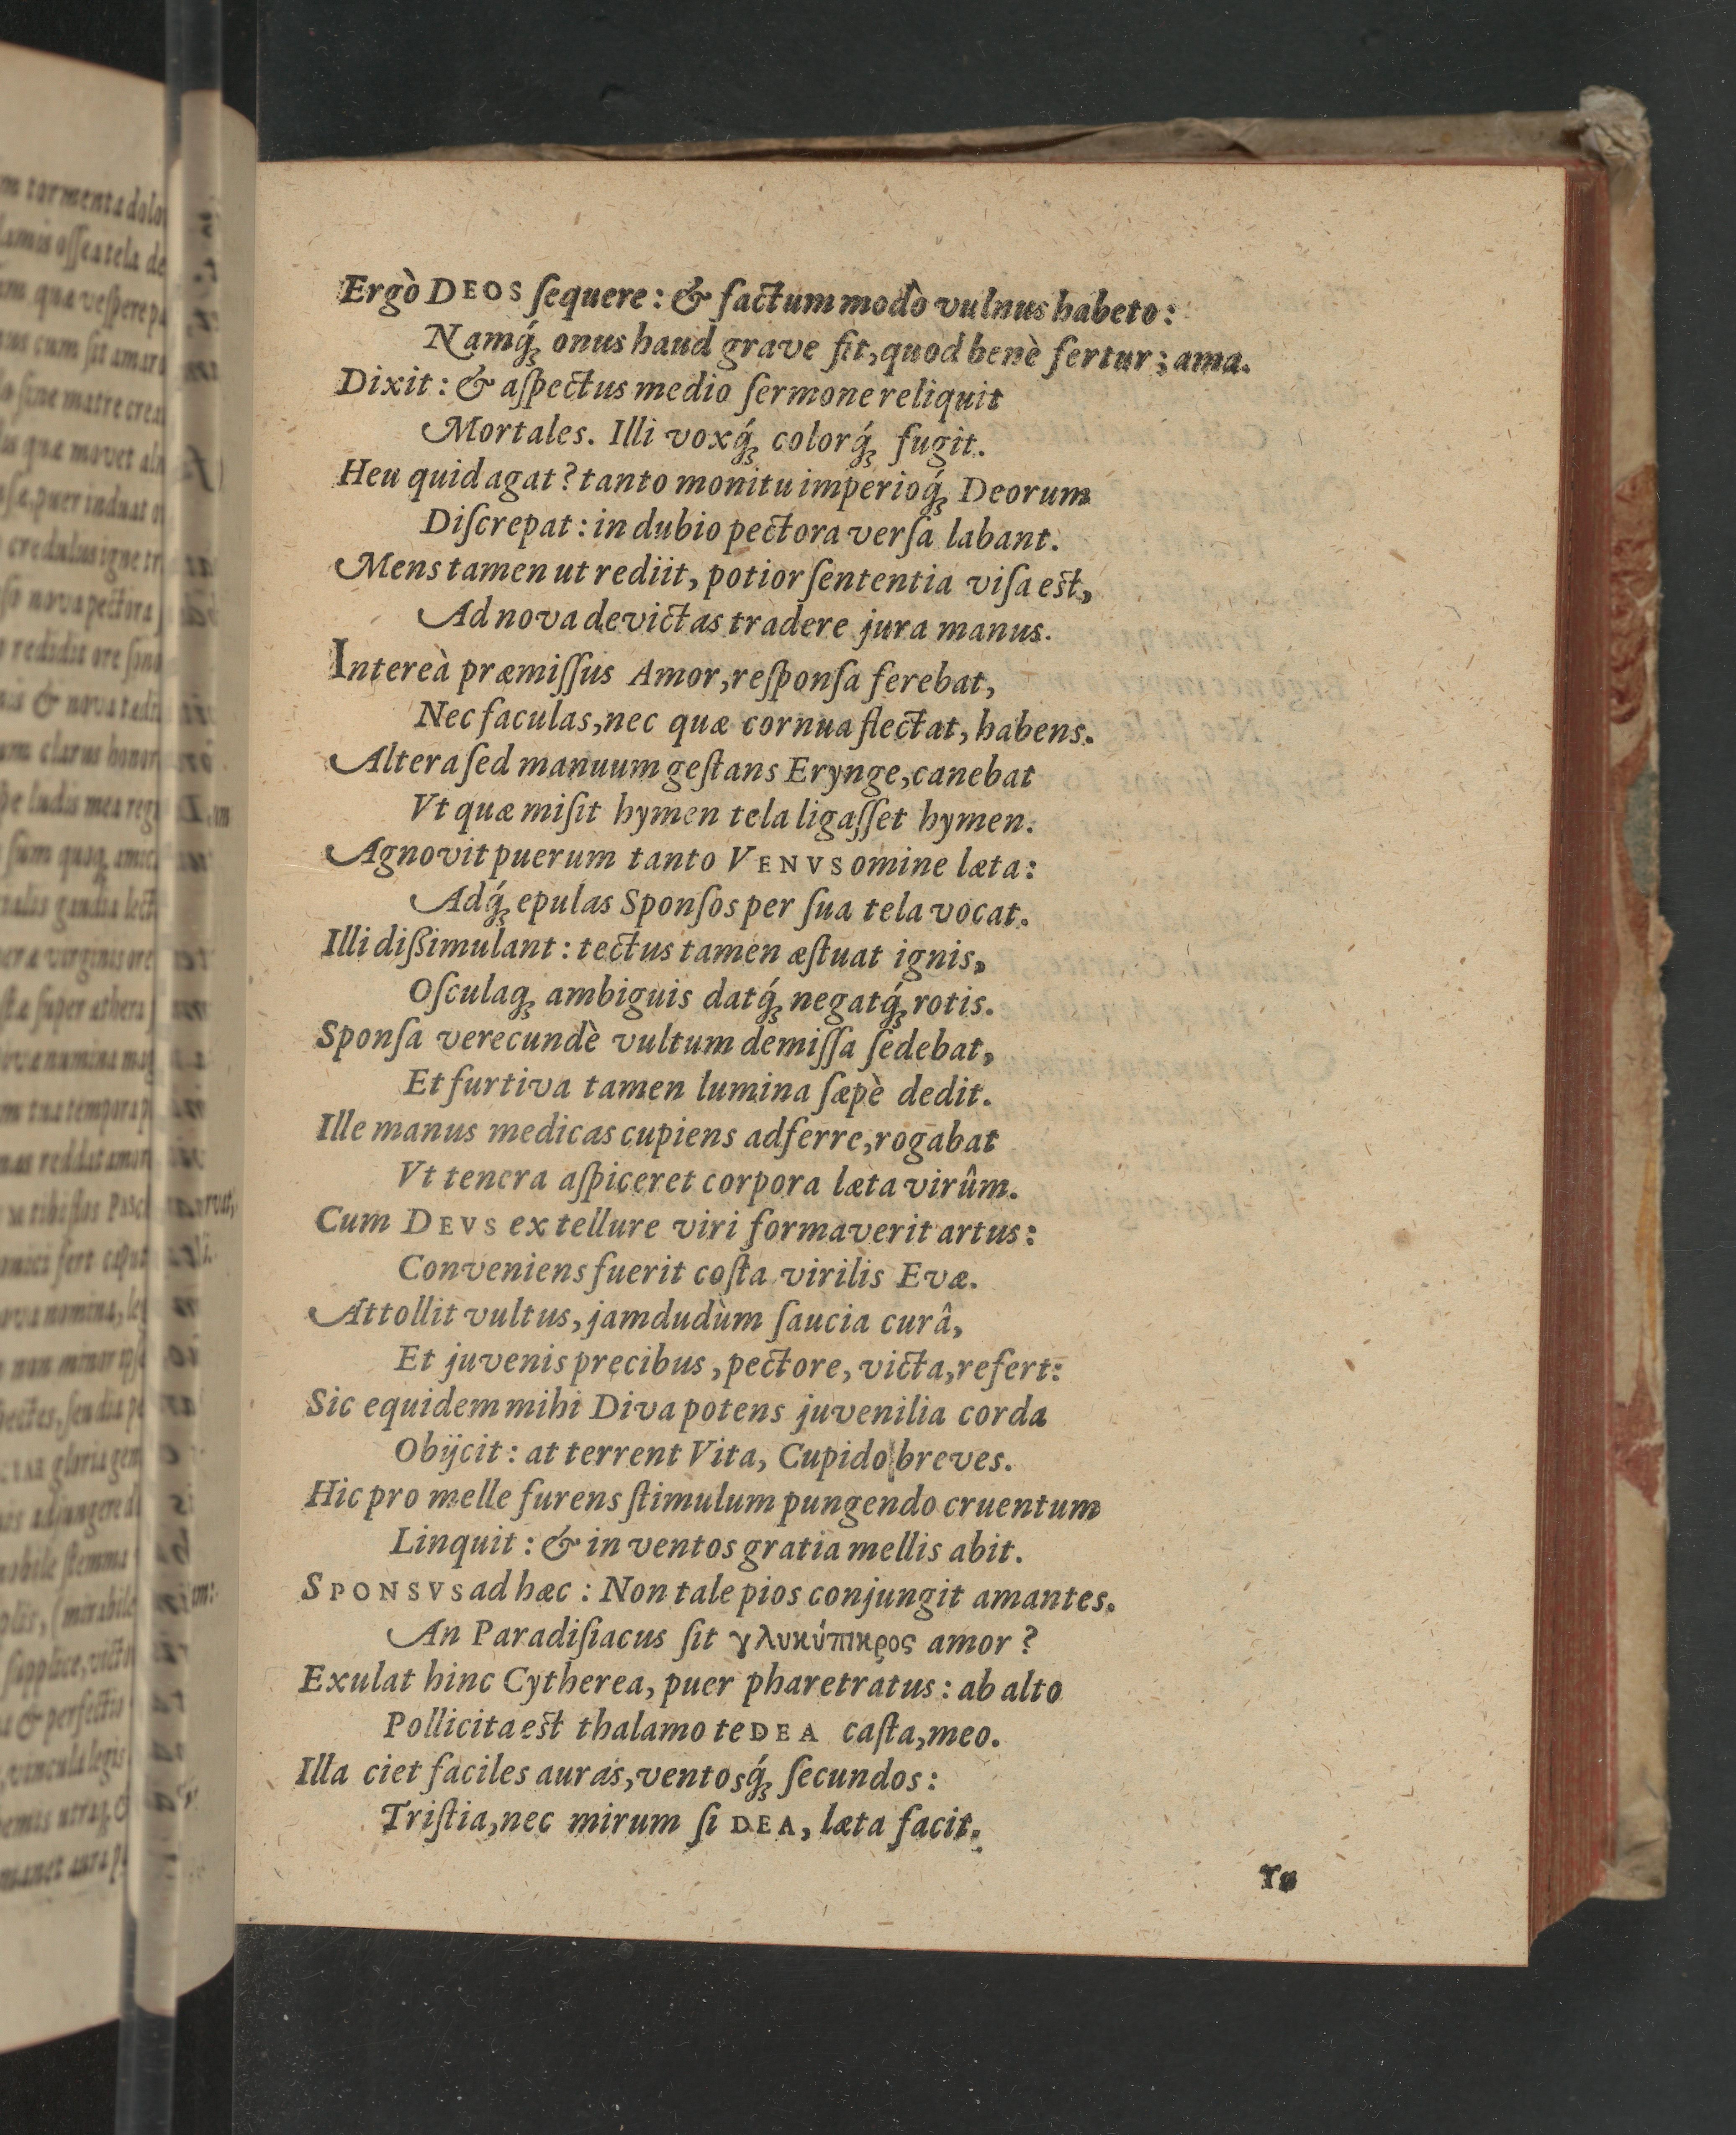 Ergò DEOS ſequere: & factum modò vulnus habeto:
Namq́; onus haud grave fit, quod benè fertur; ama.
Dixit: & aſpectus medio ſermone reliquit
Mortales. Illi voxq́; colorq́; fugit.
Heu quid agat? tanto monitu imperioq́; Deorum
Diſcrepat: in dubio pectora verſa labant.
Mens tamen ut rediit, potior ſententia viſa est,
Ad nova devictas tradere jura manus.
Intereà præmiſſus Amor, reſponſa ferebat,
Nec faculas, nec quæ cornua flectat, habens.
Altera ſed manuum geſtans Erynge, canebat
Vt quæ miſit hymen tela ligaſſet hymen.
Agnovit puerum tanto VENVS omine læta:
Adq́; epulas Sponſos per ſua tela vocat.
Illi dißimulant: tectus tamen æſtuat ignis,
Oſculaq; ambiguis datq́; negatq́; rotis.
Sponſa verecundè vultum demiſſa ſedebat,
Et furtiva tamen lumina ſæpè dedit.
Ille manus medicas cupiens adferre, rogabat
Vt tenera aſpiceret corpora læta virûm.
Cum DEVS ex tellure viri formaverit artus:
Conveniens fuerit coſta virilis Evæ.
Attollit vultus, jamdudùm ſaucia curâ,
Et juvenis precibus, pectore, victa, refert:
Sic equidem mihi Diva potens juvenilia corda
Obijcit: at terrent Vita, Cupido breves.
Hic pro melle furens ſtimulum pungendo cruentum
Linquit: & in ventos gratia mellis abit.
SPONSVS ad hæc: Non tale pios conjungit amantes.
An Paradiſiacus ſit γλυκύπικρος amor?
Exulat hinc Cytherea, puer pharetratus: ab alto
Pollicita est thalamo te DEA caſta, meo.
Illa ciet faciles auras, ventosq́; ſecundos:
Triſtia, nec mirum ſi DEA, læta facit.